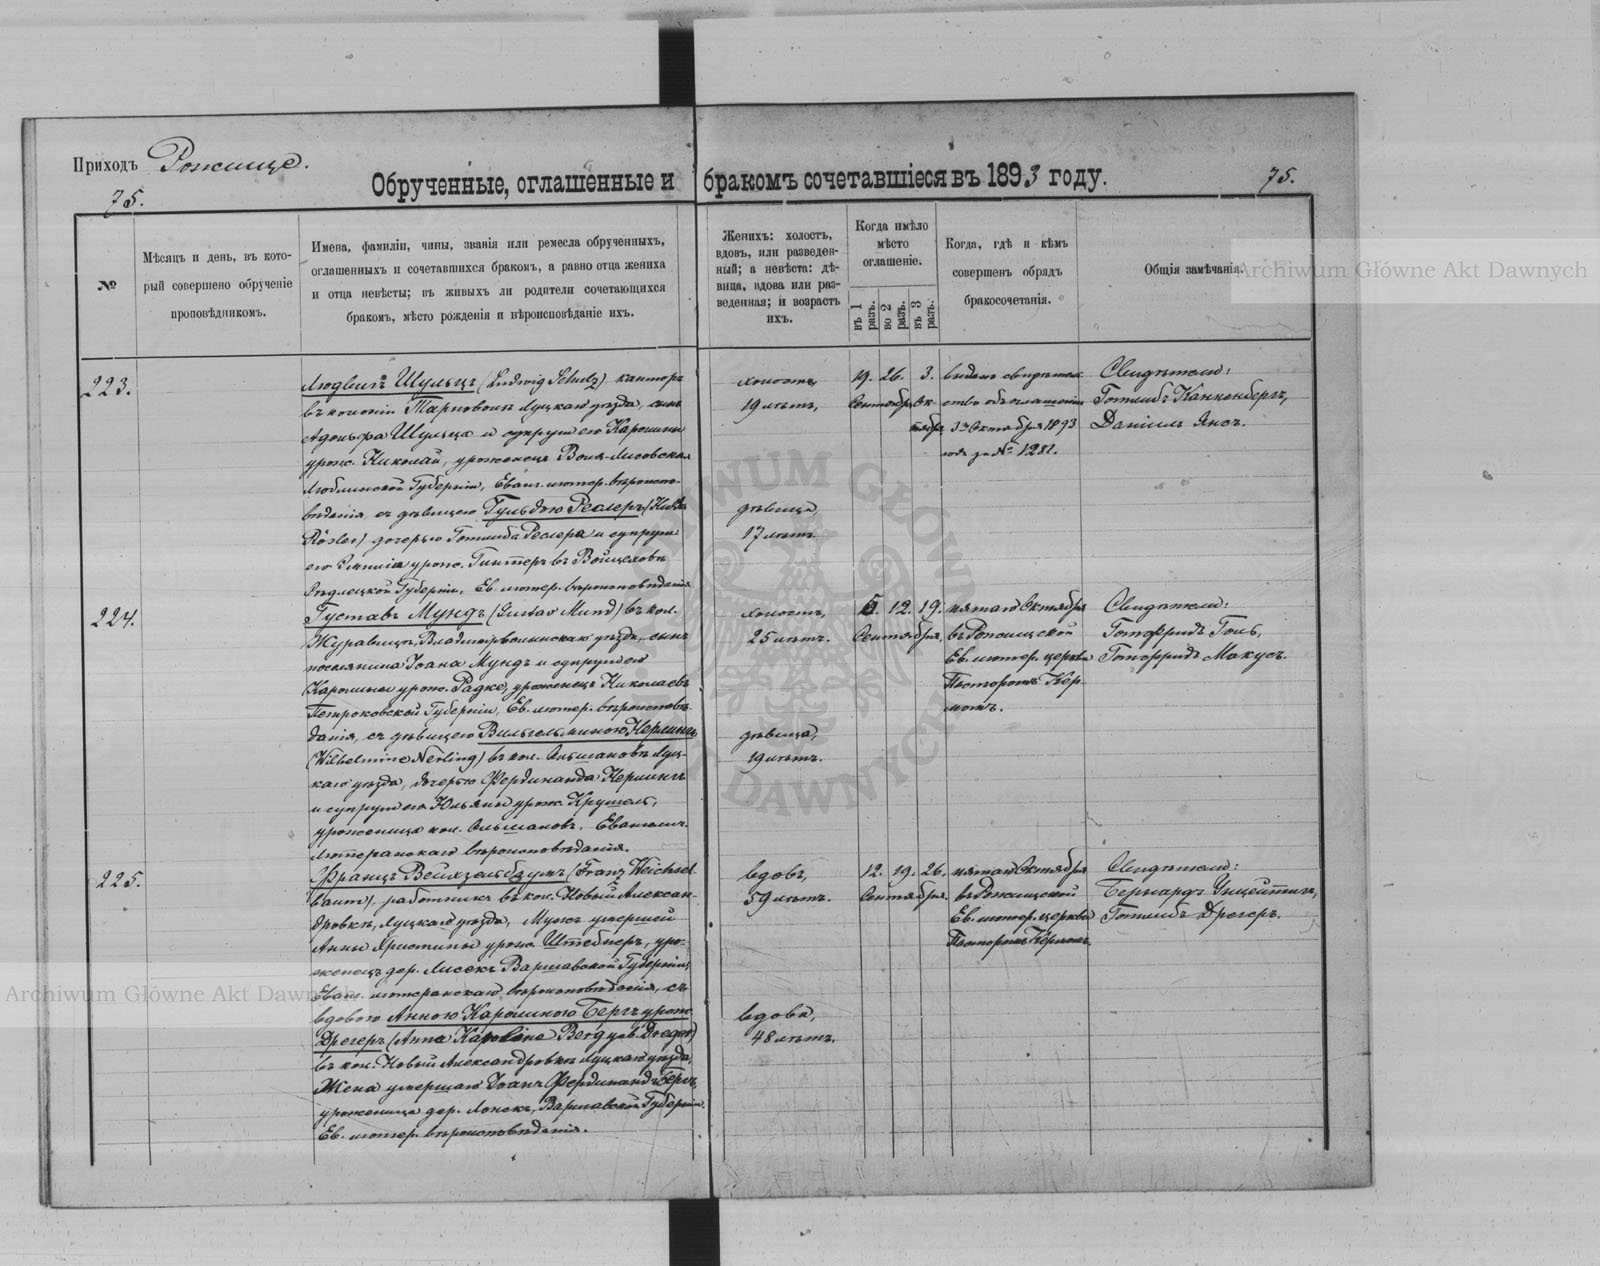 Приходъ Рожище.
75.
Обрученные, оглашенные и бракомъ сочетавшіеся въ 1893 году.
75.
№
Мѣсяцъ и день, въ кото-
рый совершено обрученіе
проповѣдникомъ.
Имена, фамиліи, чины, званія или ремесла обрученныхъ,
оглашенныхъ и сочетавшихся бракомъ, а равно отца жениха
и отца невѣсты; въ живыхъ ли родители сочетающихся
бракомъ, мѣсто рожденія и вѣроисповѣданіе ихъ.
Женихъ: холостъ,
вдовъ, или разведен-
ный; а невѣста: дѣ-
вица, вдова или раз-
веденная; и возрастъ
ихъ.
Когда имѣло
мѣсто
оглашеніе.
въ 1 разъ.
во 2 разъ.
въ 3 разъ.
Когда, гдѣ и кѣмъ
совершенъ обрядъ
бракосочетанія.
Общія замѣчанія.
223.
Людвигъ Шульцъ (Ludwig Schulz) канторъ
въ колоніи Тарновола Луцкаго уѣзда, сынъ
Адольфа Шульца и супруги его Каролины
урож. Николай, уроженецъ Воля-Лисовская
Люблинской Губерніи, Еванг. лютер. вѣроиспо-
вѣданія съ дѣвицею Гульдою Реслеръ (Hulda
Rösler) дочерью Готлиба Реслера и супруги
его Эмилія урож. Гинтеръ въ Войцеховѣ
Сѣдлецкой Губерніи, Ев. лютер. вѣроисповѣданія
холостъ,
19 лѣтъ,
дѣвица,
17 лѣтъ.
19. 26. 3.
Сентября Ок-
тября
выдано свидѣтель-
ство объ оглашеніи
3го Октября 1893
года за № 1281.
Свидѣтели:
Готлибъ Канненбергъ,
Даніилъ Янсъ.
224.
Густавъ Мундъ (Gustav Mund) въ кол.
Журавицъ, Владимірволынскаго уѣзда, сынъ
поселянина Іоана Мундъ и супруги его
Каролины урож. Радке, уроженецъ Николаевъ
Петроковской Губерніи, Ев. лютер. вѣроисповѣ-
данія, съ дѣвицею Вильгельминою Нерлингъ
(Wilhelmine Nerling) въ кол. Ольшановъ Луц-
каго уѣзда, дочерью Фердинанда Нерлингъ
и супруги его Юльяны урож. Крушель,
уроженица кол. Ольшановъ, Евангелич.
лютеранскаго вѣроисповѣданія.
холостъ,
25 лѣтъ.
дѣвица,
19 лѣтъ.
5. 12. 19.
Сентября.
пятаго Октября
въ Рожищской
Ев. лютер. церкви
Пасторомъ Кер-
момъ.
Свидѣтели:
Готфридъ Голь,
Готфридъ Макусъ.
225.
Францъ Вейхзельбаумъ (Franz Weichsel-
baum), работникъ въ кол. Новый Алексан-
дровкѣ, Луцкаго уѣзда, Мужъ умершей
Анны Христины урож. Штебнеръ, уро-
женецъ дер. Лисекъ Варшавской Губерніи,
Еван. лютеранскаго вѣроисповѣданія, съ
вдовою Анною Каролиною Бергъ урож.
Дрегеръ (Anna Karoline Berg geb. Dreger)
въ кол. Новый Александровкѣ Луцкаго уѣзда,
Жена умершаго Іоанъ Фердинандъ Бергъ,
уроженица дер. Лонскъ, Варшавской Губерніи.
Ев. лютер. вѣроисповѣданія.
вдовъ,
59 лѣтъ.
вдова,
48 лѣтъ.
12. 19. 26.
Сентября.
пятаго Октября
въ Рожищской
Ев. лютер. церкви
Пасторомъ Кермомъ.
Свидѣтели:
Бернардъ
Готлибъ Дрегеръ.
Archiwum Główne Akt Dawnych
Archiwum Główne Akt Dawnych
ARCHIWUM GŁÓWNE AKT DAWNYCH